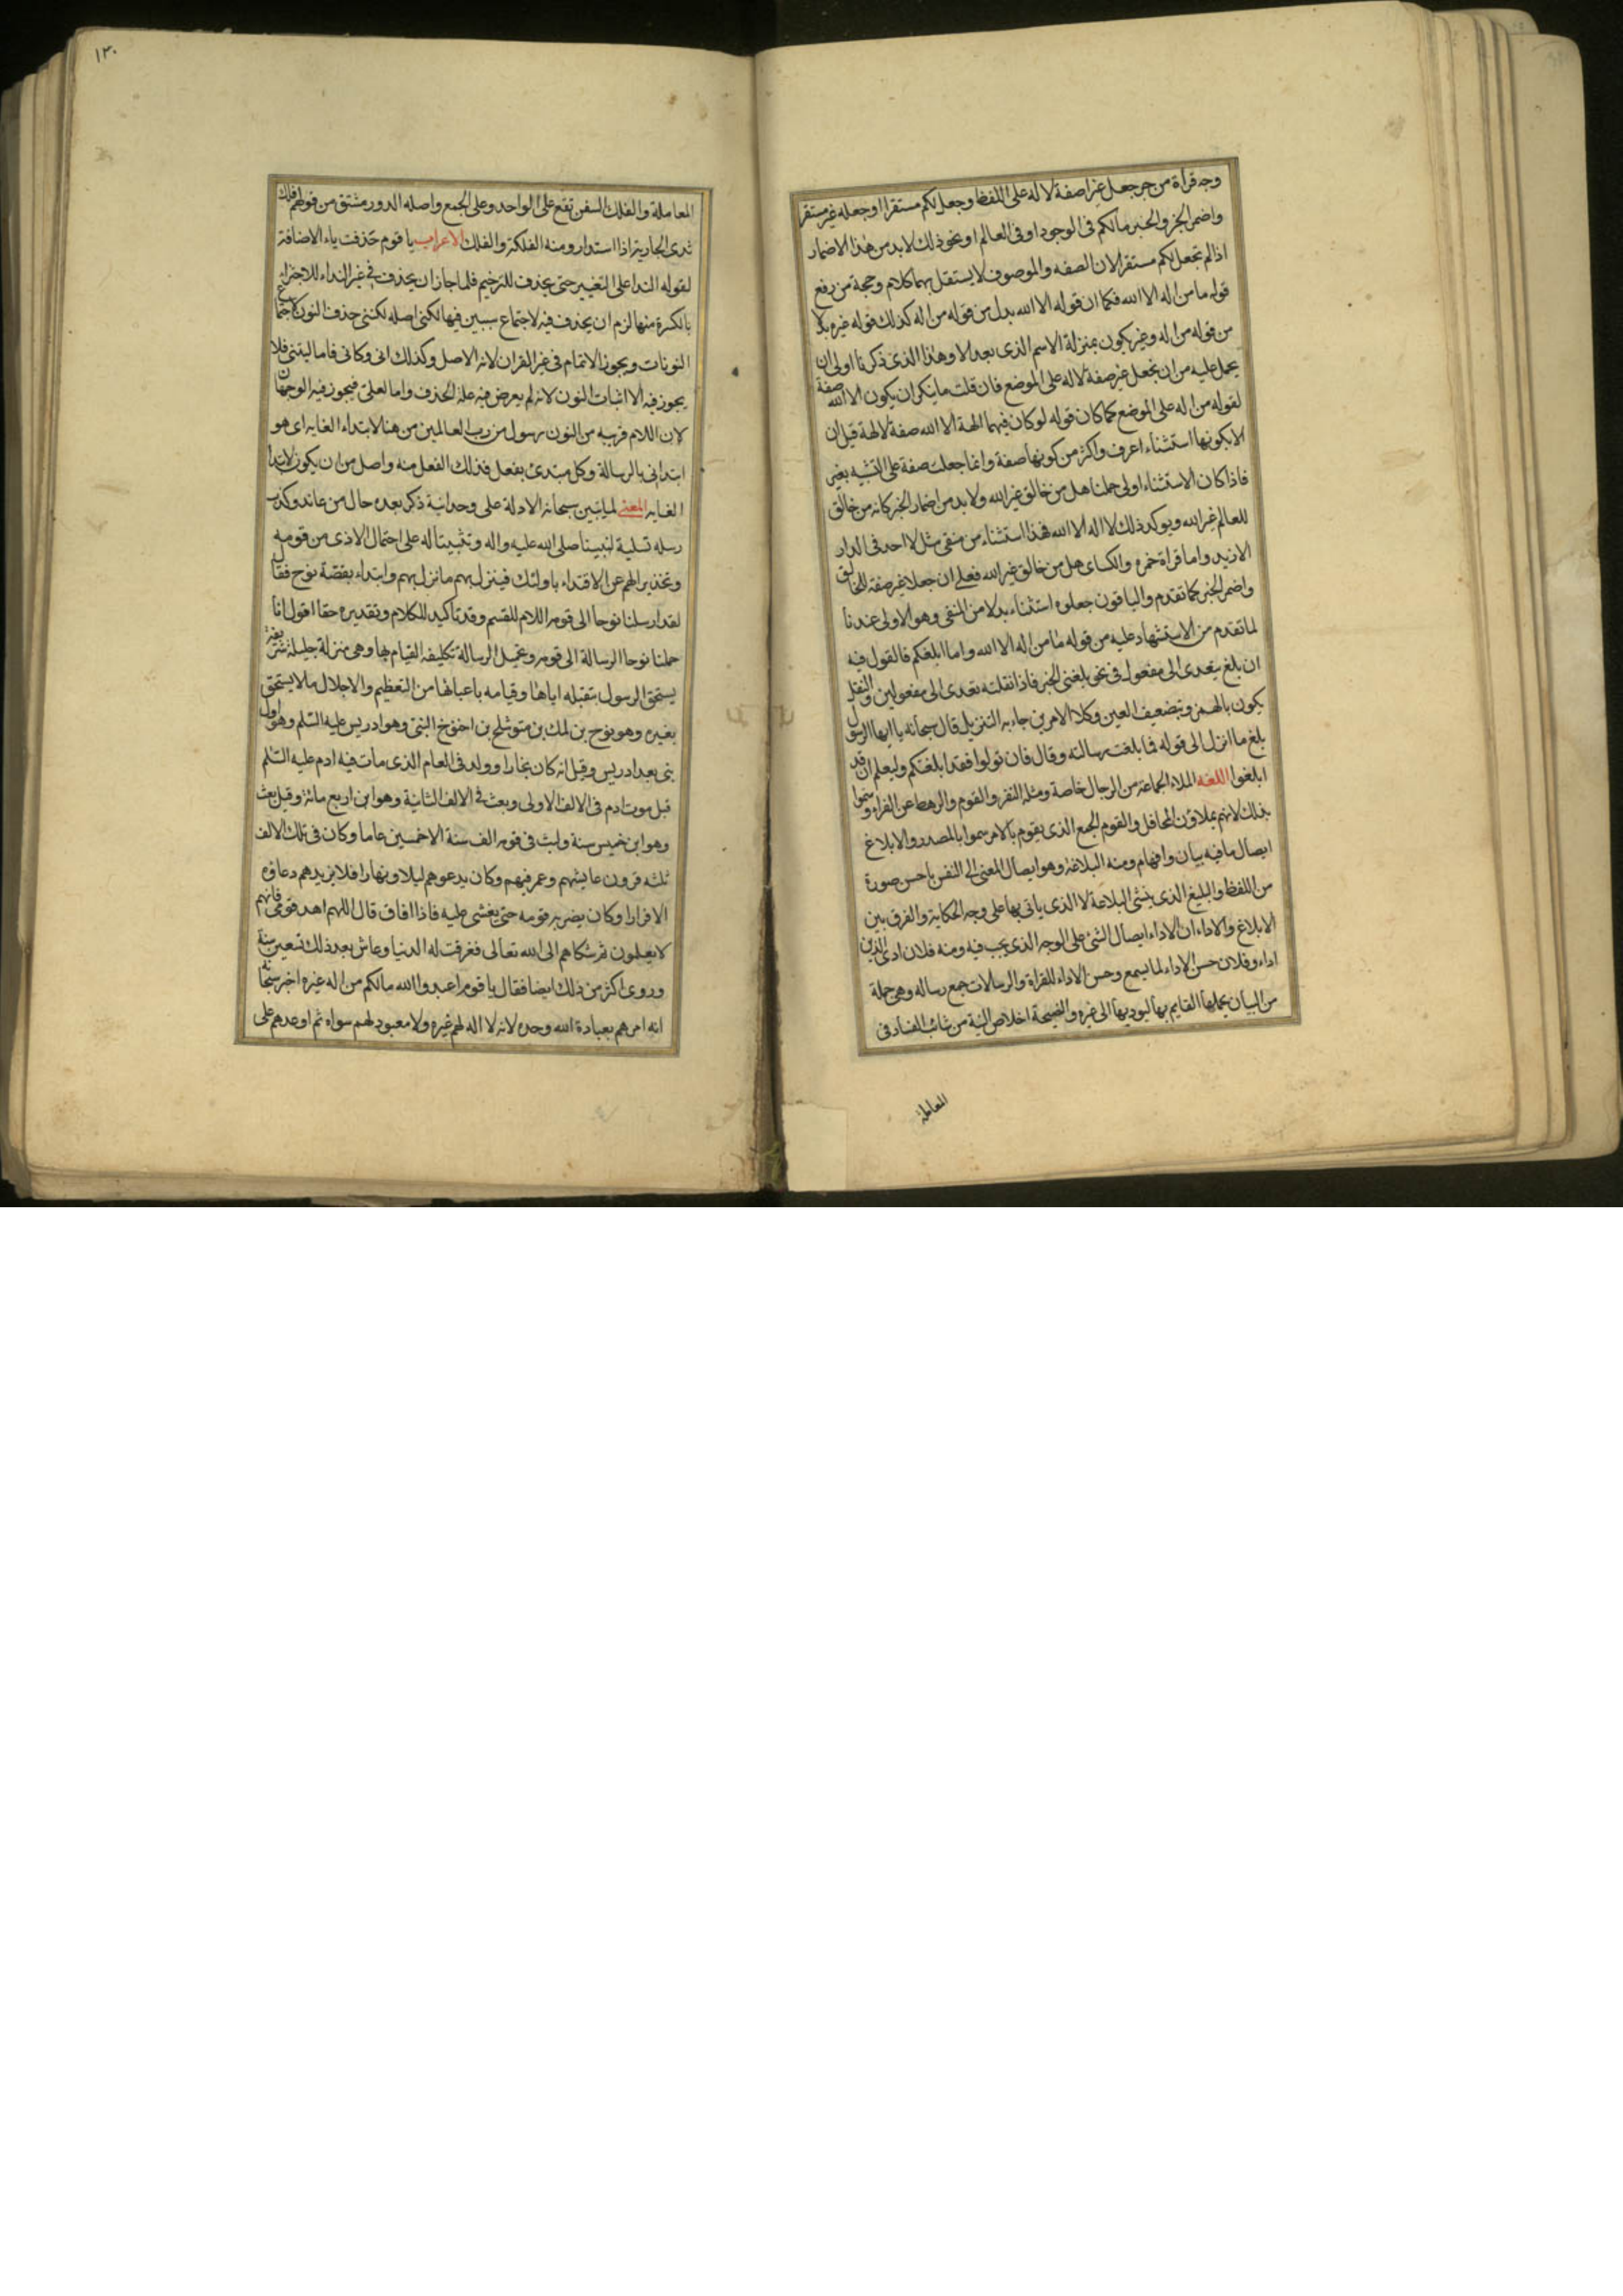 وجه قراة من جر جعل غيرا صفة لاله على اللفظ وجعل لكم مستقرا اوجعله غير مستقر
واضمر الخبر والخبر مالكم فى الوجود او فى العالم او نحو ذلك لابد من هذا الاضمار
اذا لم تجعل لكم مستقرا لان الصفه والموصوف لايستقل بهما كلام وحجة من رفع
قوله ما من اله الا الله فكما ان قوله الا الله بدل من قوله من اله كذلك قوله غيره بدلا
من قوله من اله وغير يكون بمنزلة الاسم الذى بعد الا وهذا الذى ذكرنا اولى ان
يحمل عليه من ان يجعل غير صفة لاله على الموضع فان قلت ما ينكر ان يكون الا الله صفة
لقوله من اله على الموضع كما كان قوله لو كان فيهما الهة الا الله صفة لالهة قيل ان
الا بكونها استثناء اعرف واكثر من كونها صفة وانما جعلت صفة على التشبيه بغير
فاذا كان الاستثناء اولى حملنا هل من خالق غير الله ولابد من اضمار الخبر كانه من خالق
للعالم غير الله ويوكد ذلك لا اله الا الله فهذا استثناء من منفى مثل لا احد فى الدار
الا زيد واما قراة حمزه والكساى هل من خالق غير الله فعلى ان جعلا غير صفة للخالق
واضمر الخبر كما تقدم والباقون جعلوه استثناء بدلا من المنفى وهو الاولى عندنا
لما تقدم من الاستشهاد عليه من قوله ما من اله الا الله واما ابلغكم فالقول فيه
ان بلغ يتعدى الى مفعول فى نحو بلغنى الخبر فاذا نقلته تعدى الى مفعولين والنقل
يكون بالهمز وبتضعيف العين وكلا الامرين جاء به التنزيل قال سبحانه يا ايها الرسول
بلغ ما انزل الى قوله فما بلغت رسالته وقال فان تولوا فقد ابلغتكم وليعلم ان قد
ابلغوا اللغه الملاء الجماعة من الرجال خاصة ومثله النفر والقوم والرهط عن الفراء وسموا
بذلك لانهم يملاؤن المحافل والقوم الجمع الذى يقوم بالامر سموا بالمصدر والابلاغ
ايصال ما فيه بيان وافهام ومنه البلاغة وهو ايصال المعنى الى النفس باحسن صورة
من اللفظ والبليغ الذى ينشئ البلاغة لا الذى ياتى بها على وجه الحكاية والفرق بين
الابلاغ والاداء ان الاداء ايصال الشئ على الوجه الذى يجب فيه ومنه فلان ادى الدين
اداء وفلان حسن الاداء لما يسمع وحسن الاداء للقراة والرسالات جمع رساله وهى جملة
من البيان يحملها القايم بها ليوديها الى غيره والنصيحة اخلاص النية من شائب الفساد فى
المعاملة
١٣٠
المعاملة والفلك السفن تقع على الواحد وعلى الجمع واصله الدور مشتق من قولهم فلك
ثدى الجارية اذا استدار ومنه الفلكة والفلك الاعراب يا قوم حذفت ياء الاضافة
لقوله الندا على التغيير حتى يحذف للترخيم فلما جاز ان يحذف فى غير النداء للاجتزاء
بالكسرة منها لزم ان يحذف فيه لاجتماع سببين فيها لكنى اصله لكننى حذف النون لاجتماع
النونات ويجوز الاتمام فى غير القران لانه الاصل وكذلك انى وكانى فاما ليتنى فلا
يجوز فيه الا اثبات النون لانه لم يعرض فيه علة الحذف واما لعلى فيجوز فيه الوجهان
لان اللام قريبه من النون رسول من رب العالمين من هنا لابتداء الغايه اى هو
ابتدانى بالرسالة وكل مبتدئ بفعل فذلك الفعل منه واصل من ان يكون لابتدا
الغايه المعنى لما بين سبحانه الادلة على وحدانية ذكر بعده حال من عاند وكذب
رسله تسلية لنبينا صلى الله عليه واله وتثبيتا له على احتمال الاذى من قومه
وتحذيرا لهم عن الاقتداء باولئك فينزل بهم ما نزل بهم وابتداء بقصة نوح فقال
لقد ارسلنا نوحا الى قومه اللام للقسم وقد تاكيد للكلام وتقديره حقا اقول انا
حملنا نوحا الرسالة الى قومه وتحميل الرسالة تكليفه القيام بها وهى منزلة جليلة شريفة
يستحق الرسول بتقبله اياها وقيامه باعبائها من التعظيم والاجلال ما لا يستحق
بغيره وهو نوح بن لمك بن متوشلخ بن اخنوخ النبى وهو ادريس عليه السلم وهو اول
نبى بعد ادريس وقيل انه كان نجارا وولد فى العام الذى مات فيه ادم عليه السلم
قبل موت ادم فى الالف الاولى وبعث فى الالف الثانية وهو ابن اربع مائة وقيل بعث
وهو ابن خميس سنة ولبث فى قومه الف سنة الا خمسين عاما وكان فى تلك الالف
ثلثه قرون عايشهم وعمر فيهم وكان يدعوهم ليلا ونهارا فلا يزيدهم دعاؤه
الا فرارا وكان يضربه قومه حتى يغشى عليه فاذا افاق قال اللهم اهد قومى فانهم
لا يعلمون ثم شكاهم الى الله تعالى فغرقت له الدنيا وعاش بعد ذلك تسعين سنة
وروى اكثر من ذلك ايضا فقال يا قوم اعبدوا الله مالكم من اله غيره اخبر سبحانه
انه امرهم بعبادة الله وحده لانه لا اله لهم غيره ولا معبود لهم سواه ثم اوعدهم على